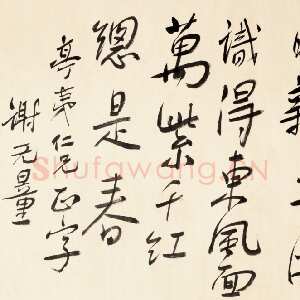 識得東風面
萬紫千红
總是春
亭夷仁兄正字
谢无量
Shufawang.CN